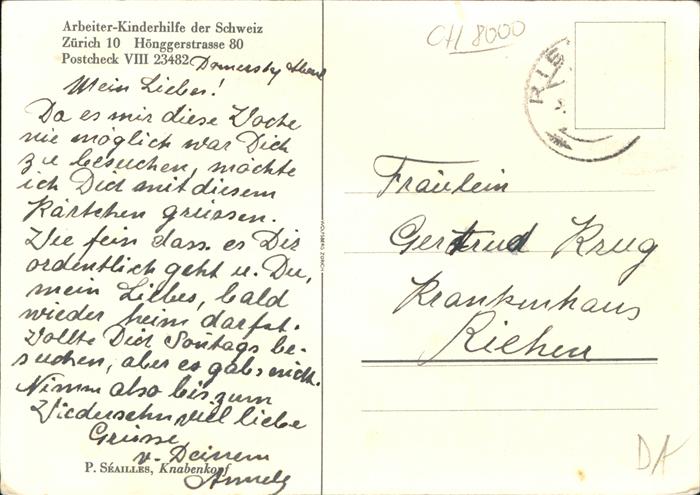 Arbeiter-Kinderhilfe der Schweiz
Zürich 10 Hönggerstrasse 80
Postcheck VIII 23482
Donnerstag Abend
Mein Liebes!
Da es mir diese Woche
nie möglich war Dich
zu besuchen, möchte
ich Dich mit diesem
Kärtchen grüssen.
Wie fein dass es Dir
ordentlich geht u. Du,
mein Liebes, bald
wieder heim darfst.
Wollte Dich Sontags be-
suchen, aber es gab's nicht.
Nimm also bis zum
Wiedersehn viel liebe
Grüsse
v. Deinem
P. Séailles, Knabenkopf
CH 8000
Fräulein
Gertrud Krug
Krankenhaus
Riehen
DK